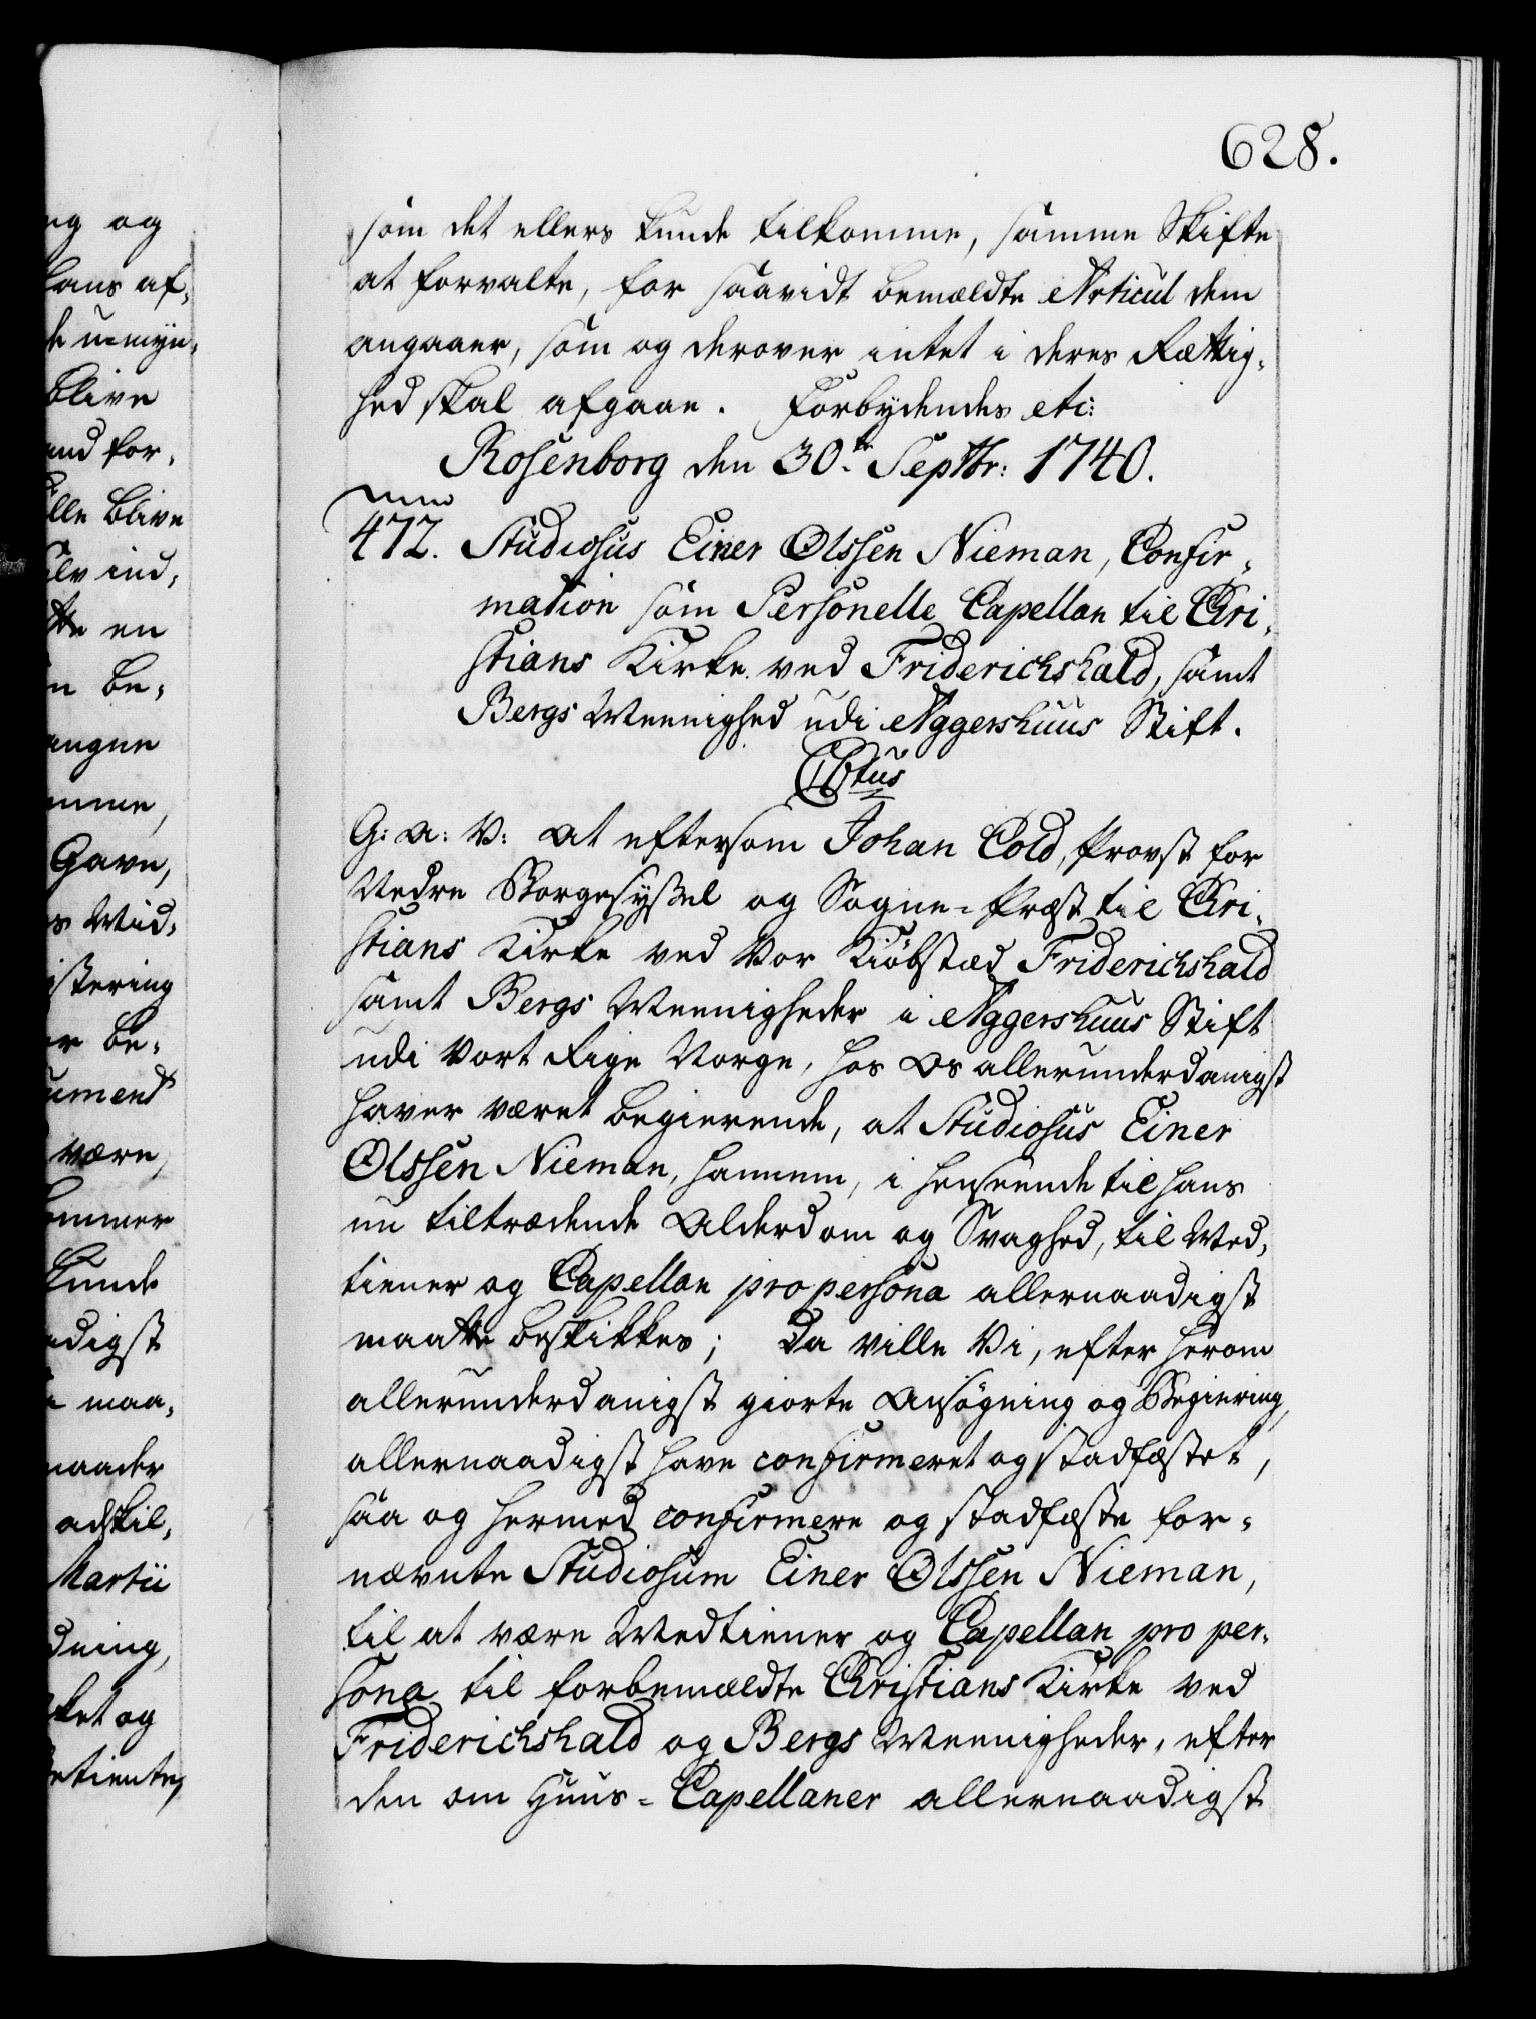 628.
som det ellers kunde tilkomme, samme Skifte
at forvalte, for saavidt bemældte Articul dem
angaaer, som og derover intet i deres Rettig-
hed skal afgaae. Forbydendes etc:
Rosenborg den 30.te Septbr: 1740.
472. Studiosus Einer Olssen Nieman, Confir-
mation som Personelle Capellan til Chri-
stians Kirke ved Friderichshald, samt
Bergs Meenighed udi Aggershuus Stift.
C6tus
G: A: V: At eftersom Johan Cold, Provst for
Nedre Borgesyssel og Sogne-Præst til Chri-
stians Kirke ved Vor Kiøbstæd Friderichshald
samt Bergs Meenigheder i Aggershuus Stift
udi Vort Rige Norge, hos Os allerunderdanigst
haver været begierende, at Studiosus Einer
Olssen Nieman, hannem, i henseende til hans
nu tiltrædende Alderdom og Svaghed, til Med-
tiener og Capellan pro persona allernaadigst
maatte beskikkes; Da ville Vi, efter herom
allerunderdanigst giorte Ansøgning og Begiering,
allernaadigst have confirmeret og stadfæstet,
saa og hermed confirmere og stadfæste for-
nævnte Studiosum Einer Olssen Nieman,
til at være Medtiener og Capellan pro per-
sona til forbemældte Christians Kirke ved
Friderichshald og Bergs Meenigheder, efter
den om Huus-Capellaner allernaadigst
ng og
hans af-
de u-myn-
blive
and for-
lle blive
elv ind-
tte en
n be-
angne
mme,
Gavn,
s Vid-
istering
er be-
ument
være,
ommer
kunde
adigst
maa-
naader
adskil-
Martii
dning,
ket og
etiente,